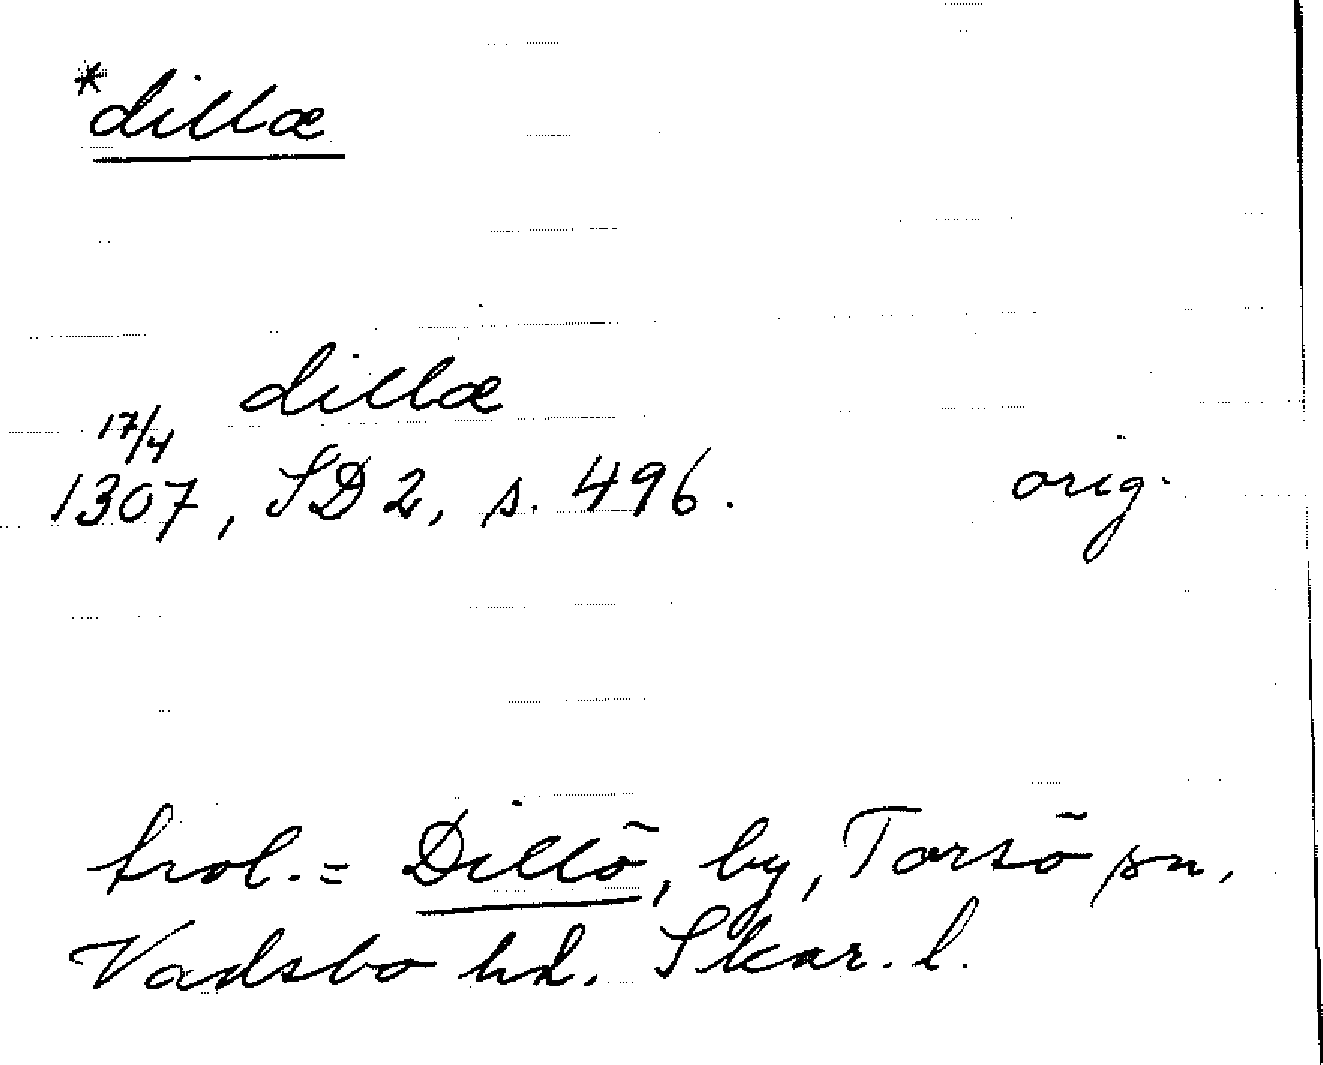 *dillæ
dillæ
17/4
1307, SD 2, s. 496. orig.
trol. = Dillö, by, Torsö sn,
Vadsbo hd. Skar. l.